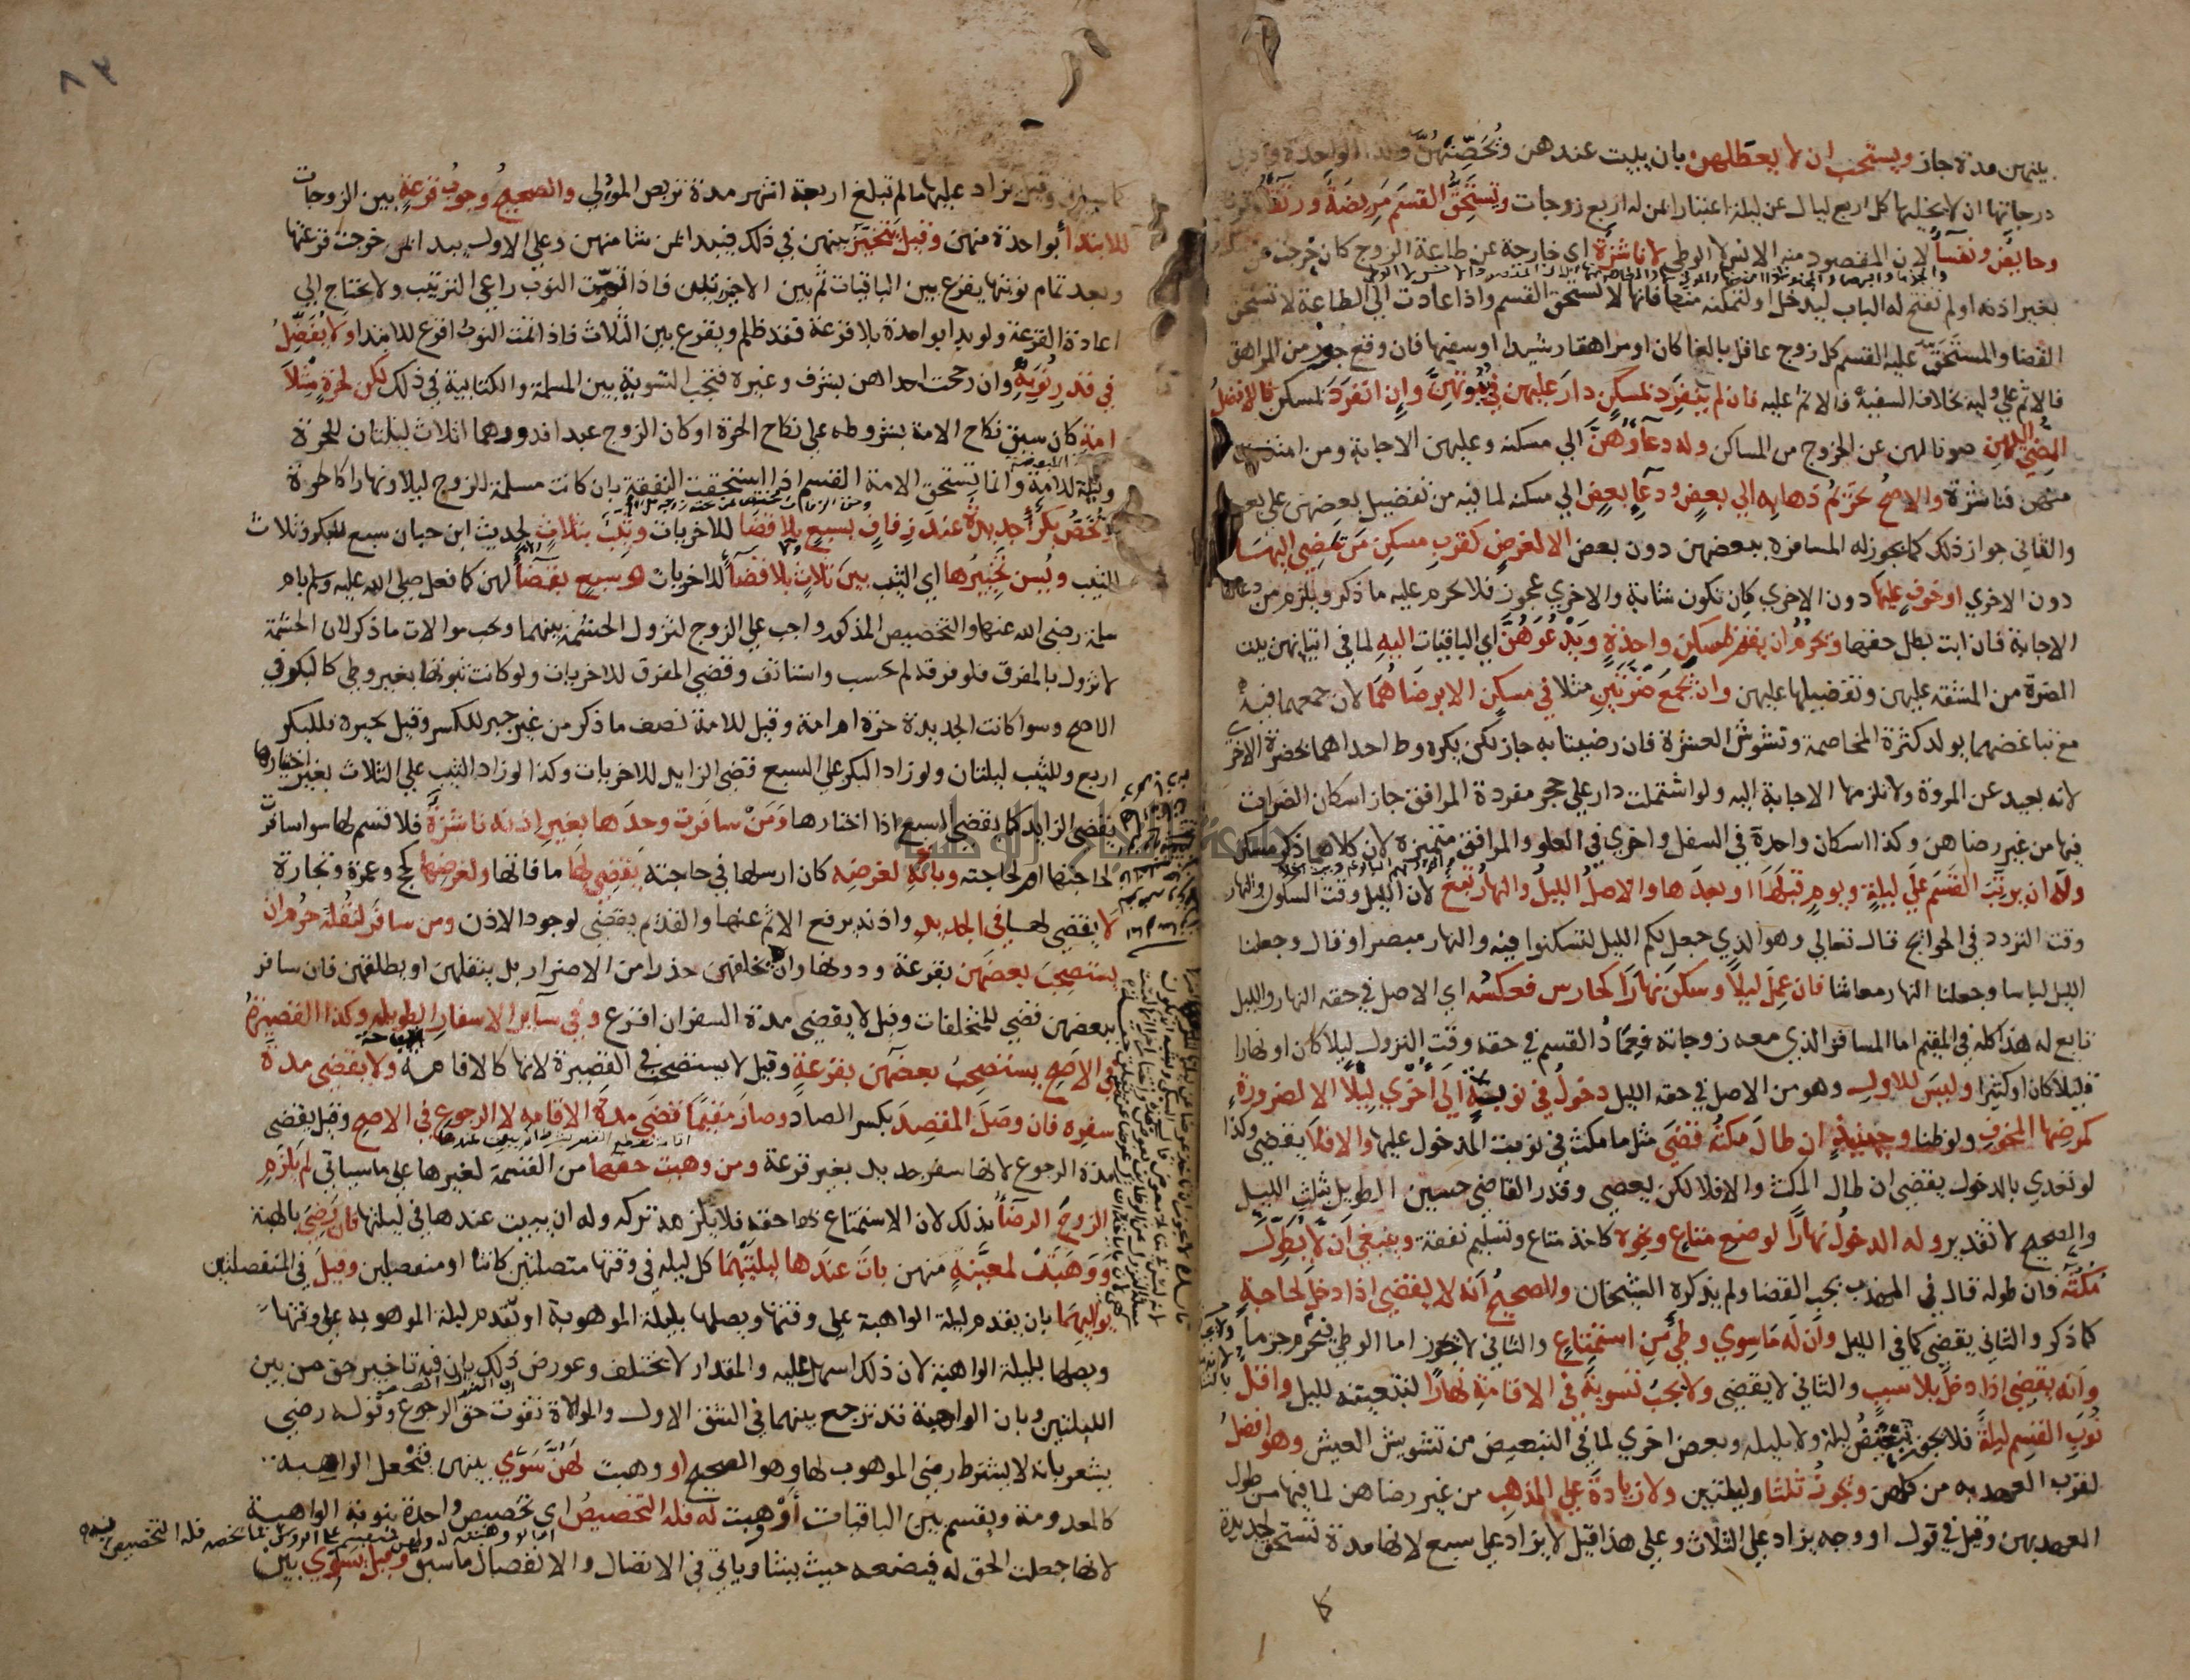 بينهن مدة جاز ويستحب ان لا يعطلهن بان يبيت عندهن ويحصنهن وكذا الواحدة وادنى
درجاتها ان لا يخليها كل اربع ليال عن ليلة اعتبارا بمن له اربع زوجات وتستحق القسم مريضة ورتقا وقرنا
وحايض ونفسا لان المقصود منه الانس لا الوطي لا ناشزة اي خارجة عن طاعة الزوج كان خرجت من مسكنه
بغير اذنه او لم تفتح له الباب ليدخل او لم تمكنه منها فانها لا تستحق القسم واذا عادت الى الطاعة لا تستحق
القضا والمستحق عليه القسم كل زوج عاقل بالغا كان او مراهقا رشيدا او سفيها فان وقع جور من المراهق
فالاثم على وليه بخلاف السفيه فالاثم عليه فان لم ينفرد بمسكن دار عليهن في بيوتهن وان انفرد بمسكن فالافضل
المضي اليهن صونا لهن عن الخروج من المساكن وله دعاؤهن الي مسكنه وعليهن الاجابة ومن امتنعت
منهن فناشزة والاصح تحريم ذهابه الي بعض ودعا بعض الي مسكنه لما فيه من تفضيل بعضهن على بعض
والثاني جواز ذلك كما يجوز له المسافرة ببعضهن دون بعض الا لغرض كقرب مسكن من مضى اليها
دون الاخري او خوف عليها دون الاخري كان تكون شابة والاخري عجوز فلا يحرم عليه ما ذكر ويلزم من دعاها
الاجابة فان ابت بطل حقها ويحرم ان يقيم بمسكن واحدة ويدعوهن اي الباقيات اليه لما في اتيانهن بيت
الضرة من المشقه عليهن وتفضيلها عليهن وان يجمع ضرتين مثلا في مسكن الا برضاهما لان جمعهما فيه
مع تباغضهما يولد كثرة المخاصمة وتشوش العشرة فان رضيتا به جاز لكن يكره وطء احداهما بحضرة الاخرى
لانه بعيد عن المروة ولا تلزمها الاجابة اليه ولو اشتملت دار على حجر مفردة المرافق جاز اسكان الضرات
فيها من غير رضاهن وكذا اسكان واحدة في السفل واخري في العلو والمرافق متميزة لان كلا مما ذكر مسكن
وله ان يرتب القسم على ليلة ويوم قبلها او بعدها والاصل الليل والنهار تبع لان الليل وقت السكون والنهار
وقت التردد في الحوايج قال تعالي وهو الذي جعل لكم الليل لتسكنوا فيه والنهار مبصرا وقال وجعلنا
الليل لباسا وجعلنا النهار معاشا فان عمل ليلا وسكن نهارا كحارس فعكسه اي الاصل في حقه النهار والليل
تابع له هذا كله في المقيم اما المسافر الذي معه زوجاته فعماد القسم في حقه وقت النزول ليلا كان او نهارا
قليلا كان او كثيرا وليس للاول وهو من الاصل في حقه الليل دخول في نوبة الى اخري ليلا الا لضرورة
كمرضها المخوف ولو ظنا وحينئذ ان طال مكثه قضى مثل ما مكث في نوبت المدخول عليها والا فلا يقضي وكذا
لو تعدي بالدخول يقضي ان طال المكث والا فلا لكن يعصي وقدر القاضي حسين الطويل بثلث الليل
والصحيح لا تقدير وله الدخول نهارا لوضع متاع ونحوه كاخذ متاع وتسليم نفقة وينبغي ان لا يطول
مكثه فان طوله قال في المهذب يجب القضا ولم يذكره الشيخان والصحيح انه لا يقضي اذا دخل لحاجة
كما ذكر والثاني يقضي كما في الليل وان له ما سوي وطي من استمتاع والثاني لا يجوز اما الوطي فيحرم جزما
وانه يقضي اذا دخل بلا سبب والثاني لا يقضي ولا يجب تسوية في الاقامة نهارا لتبعيته لليل واقل
نوب القسم ليلة فلا يجوز تبعيض ليلة ولا بليلة وبعض اخري لما في التبعيض من تشويش العيش وهو افضل
لقرب العهد به من كلهن وتجوز ثلثا وليلتين ولا زيادة على المذهب من غير رضاهن لما فيها من طول
العهد بهن وقيل في قول او وجه يزاد على الثلاث وعلى هذا قيل لا يزاد على سبع لانها مدة تستحق لجديدة
كا
٨٣
وقيل يزاد عليها ما لم تبلغ اربعة اشهر مدة تربص المولي والصحيح وجوب قرعة بين الزوجات
للابتدا بواحدة منهن وقيل يتخير بينهن في ذلك فيبدا بمن شا منهن وعلي الاول يبدا بمن خرجت قرعتها
وبعد تمام نوبتها يقرع بين الباقيات ثم بين الاخيرتين فاذا تمت النوب راعي الترتيب ولا يحتاج الي
اعادة القرعة ولو بدا بواحدة بلا قرعة فقد ظلم ويقرع بين الثلاث فاذا تمت النوب اقرع للابتدا ولا يفضل
في قدر نوبة وان رجحت احداهن بشرف وغيره فتجب التسوية بين المسلمة والكتابية في ذلك لكن لحرة مثلا
امة كان سبق نكاح الامة بشروطه على نكاح الحرة او كان الزوج عبدا فدورهما اثلاث ليلتان للحرة
وليلة للامة وانما تستحق الامة القسم اذا استحقت النفقة بان كانت مسلمة للزوج ليلا ونهارا كالحرة
وتخص بكر جديدة عند زفاف بسبع بلا قضا للاخريات وثيب بثلاث لحديث ابن حبان سبع للبكر وثلاث
للثيب ويسن تخييرها اي الثيب بين ثلاث بلا قضا للاخريات وسبع بقضا لهن كما فعل صلى الله عليه وسلم بام
سلمة رضي الله عنها والتخصيص المذكور واجب على الزوج لتزول الحشمة بينهما وتجب موالات ما ذكر لان الحشمة
لا تزول بالمفرق فلو فرقه لم يحسب واستانف وقضي المفرق للاخريات ولو كانت ثيوبتها بغير وطي كالبكر في
الاصح وسوا كانت الجديدة حرة ام امة وقيل للامة نصف ما ذكر من غير جبر للكسر وقيل يجبره وللبكر
اربع وللثيب ليلتان ولو زاد البكر على السبع قضى الزايد للاخريات وكذا لو زاد الثيب على الثلاث بغير اختيارها
يقضي الزايد كما يقضي السبع اذا اختارها ومن سافرت وحدها بغير اذنه ناشزة فلا قسم لها سوا سافرت
لحاجتها ام لحاجته وباذنه لغرضه كان ارسلها في حاجته يقضي لها ما فاتها ولغرضها كحج وعمرة وتجارة
لا يقضي لها في الجديد واذنه يرفع الاثم عنها والقديم يقضي لوجود الاذن ومن سافر لنقلة حرم ان
يستصحب بعضهن بقرعة ودونها وان يخلفهن حذرا من الاضرار بل ينقلهن او يطلقهن فان سافر
ببعضهن قضي للمتخلفات وقيل لا يقضي مدة السفر ان اقرع وفي ساير الاسفار الطويله وكذا القصيرة
في الاصح يستصحب بعضهن بقرعة وقيل لا يستصحب في القصيرة لانها كالاقامة ولا يقضي مدة
سفره فان وصل المقصد بكسر الصاد وصار مقيما قضى مدة الاقامه لا الرجوع في الاصح وقيل يقضي
مدة الرجوع لانها سفر جديد بغير قرعة ومن وهبت حقها من القسمة لغيرها على ما سياتي لم يلزم
الزوج الرضا بذلك لان الاستمتاع بها حقه فلا يلزمه تركه وله ان يبيت عندها في ليلتها فان رضي بالهبة
ووهبت لمعينة منهن بات عندها ليلتيهما كل ليله في وقتها متصلتين كانتا او منفصلين وقيل في المنفصلتين
يواليهما بان يقدم ليلة الواهبة على وقتها ويصلها بليلة الموهوبة او يقدم ليلة الموهوبه على وقتها
ويصلها بليلة الواهبة لان ذلك اسهل عليه والمقدار لا يختلف وعورض ذلك بان فيه تاخير حق من بين
الليلتين وبان الواهبة قد ترجع بينهما في الشق الاول والموالاة تفوت حق الرجوع وقوله رضي
يشعر بانه لا يشترط رضى الموهوب لها وهو الصحيح او وهبت لهن سوي بينهن فتجعل الواهبة
كالمعدومة ويقسم بين الباقيات او وهبت له فله التخصيص اي تخصيص واحدة بنوبة الواهبة
لانها جعلت الحق له فيضعه حيث يشا وياتي في الاتصال والانفصال ما سبق وقيل يسوي بين